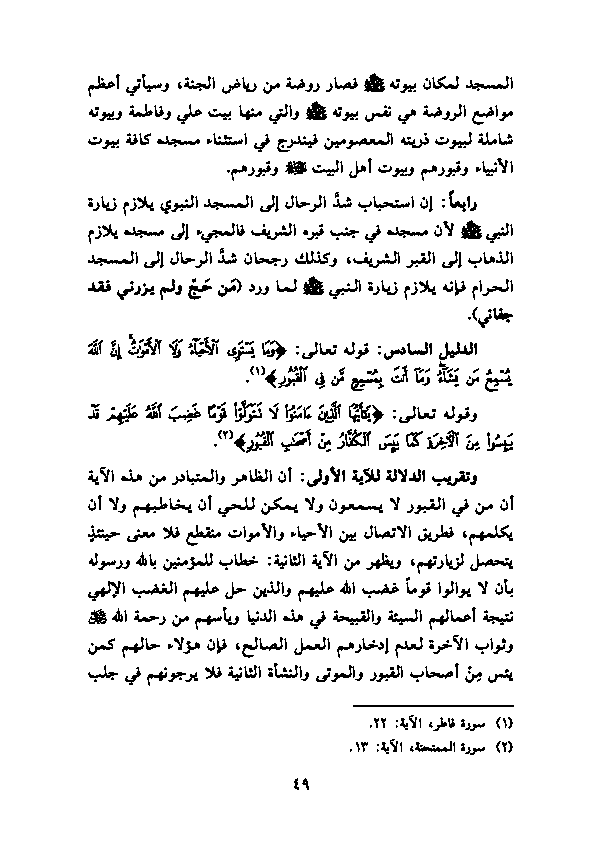 المسجد لمكان بيوته ﷺ فصار روضة من رياض الجنة، وسيأتي أعظم
مواضع الروضة هي نفس بيوته ﷺ والتي منها بيت علي وفاطمة وبيوته
شاملة لبيوت ذريته المعصومين فيندرج في استثناء مسجده كافة بيوت
الأنبياء وقبورهم وبيوت أهل البيت وقبورهم.
رابعاً: إن استحباب شدَّ الرحال إلى المسجد النبوي يلازم زيارة
النبي ﷺ لأن مسجده في جنب قبره الشريف فالمجيء إلى مسجده يلازم
الذهاب إلى القبر الشريف، وكذلك رجحان شدَّ الرحال إلى المسجد
الحرام فإنه يلازم زيارة النبي ﷺ لما ورد (مَن حَجّ ولم يزرني فقد
جفاني).
الدليل السادس: قوله تعالى: ﴿وَمَا يَسْتَوِي الْأَحْيَاءُ وَلَا الْأَمْوَاتُ ۚ إِنَّ اللَّهَ
يُسْمِعُ مَن يَشَاءُ ۖ وَمَا أَنتَ بِمُسْمِعٍ مَّن فِي الْقُبُورِ﴾(١).
وقوله تعالى: ﴿يَا أَيُّهَا الَّذِينَ آمَنُوا لَا تَتَوَلَّوْا قَوْمًا غَضِبَ اللَّهُ عَلَيْهِمْ قَدْ
يَئِسُوا مِنَ الْآخِرَةِ كَمَا يَئِسَ الْكُفَّارُ مِنْ أَصْحَابِ الْقُبُورِ﴾(٢).
وتقريب الدلالة للآية الأولى: أن الظاهر والمتبادر من هذه الآية
أن من في القبور لا يسمعون ولا يمكن للحي أن يخاطبهم ولا أن
يكلمهم، فطريق الاتصال بين الأحياء والأموات منقطع فلا معنى حينئذٍ
يتحصل لزيارتهم، ويظهر من الآية الثانية: خطاب للمؤمنين بالله ورسوله
بأن لا يوالوا قوماً غضب الله عليهم والذين حل عليهم الغضب الإلهي
نتيجة أعمالهم السيئة والقبيحة في هذه الدنيا ويأسهم من رحمة الله
وثواب الآخرة لعدم إدخارهم العمل الصالح، فإن هؤلاء حالهم كمن
يئس مِنْ أصحاب القبور والموتى والنشأة الثانية فلا يرجونهم في جلب
(١) سورة فاطر، الآية: ٢٢.
(٢) سورة الممتحنة، الآية: ١٣.
٤٩